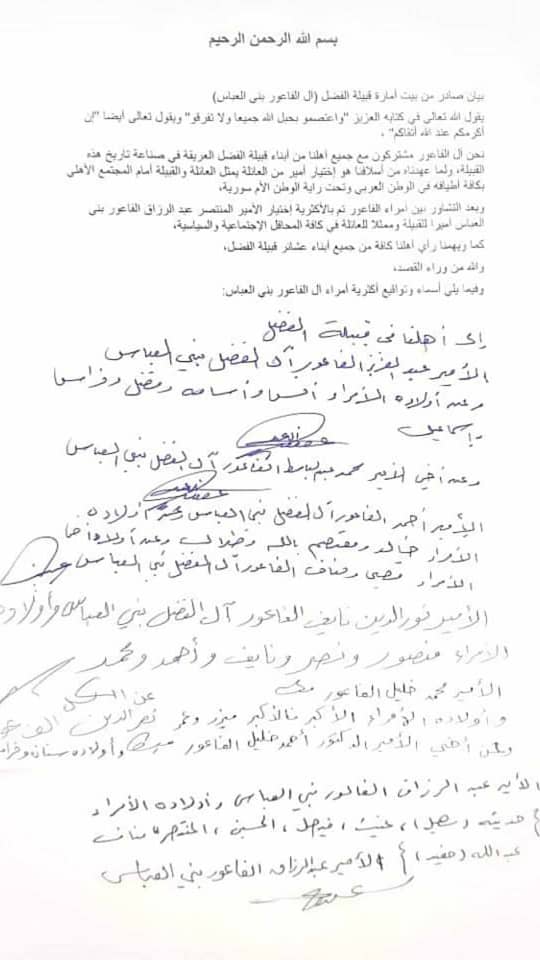 بسم الله الرحمن الرحيم
بيان صادر من بيت أمارة قبيلة الفضل (آل الفاعور بني العباس)
يقول الله تعالى في كتابه العزيز "واعتصمو بحبل الله جميعا ولا تفرقو" ويقول تعالى أيضا "إن
أكرمكم عند الله أتقاكم" ،
نحن آل الفاعور مشتركون مع جميع أهلنا من أبناء قبيلة الفضل العريقة في صناعة تاريخ هذه
القبيلة، ولما عهدناه من أسلافنا هو إختيار أمير من العائلة يمثل العائلة والقبيلة أمام المجتمع الأهلي
بكافة أطيافه في الوطن العربي وتحت راية الوطن الأم سورية،
وبعد التشاور بين امراء الفاعور تم بالأكثرية إختيار الأمير المنتصر عبد الرزاق الفاعور بني
العباس أميرا للقبيلة وممثلا للعائلة في كافة المحافل الإجتماعية والسياسية،
كما ويهمنا رأي أهلنا كافة من جميع أبناء عشائر قبيلة الفضل،
والله من وراء القصد،
وفيما يلي أسماء وتواقيع أكثرية أمراء آل الفاعور بني العباس:
أهلنا في قبيلة الفضل
الأمير عبد العزيز الفاعور آل الفضل بني العباس
وعن أولاده الأمراء وأسامه وفضل وفراس
وإسماعيل
وعن أخي الأمير محمد عبد الباسط الفاعور آل الفضل بني العباس
الأمير أحمد الفاعور آل الفضل بني العباس أولاده
الأمراء خالد ومعتصم بالله وطلال وعن أولاد
الأمراء قصي ومناف الفاعور آل الفضل بني العباس
الأمير نور الدين نايف الفاعور آل الفضل بني العباس وأولاده
الأمراء منصور ونصر ونايف وأحمد ومحمد
الأمير محمد خليل الفاعور
وأولاده الأمراء الأكبر فالأكبر ميزر وعمر
وعن أخي الأمير الدكتور أحمد خليل الفاعور وأولاده سنان
الأمير عبد الرزاق الفاعور بني العباس وأولاده الأمراء
فيصل، الحسين، المنتصر، مناف
عبد الله (حفيد) الأمير عبد الرزاق الفاعور بني العباس